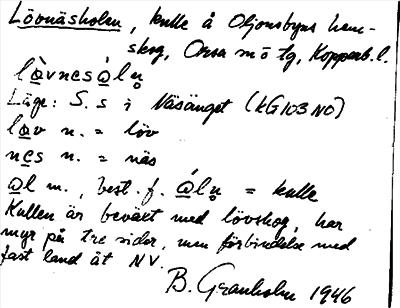 Lövnäsholen, kulle å Oljonsbyns hem-
skog, Orsa sn ö tg, Kopparb. l.
lòvnesòlņ
Läge: S. s i Näsänget (kG103NO)
lov n. = löv
nes n. = näs
ol m., best. f. óln = kulle
Kullen är beväxt med lövskog, har
myr på tre sidor, men förbindelse med
fast land åt NV.
B. Granholm 1946